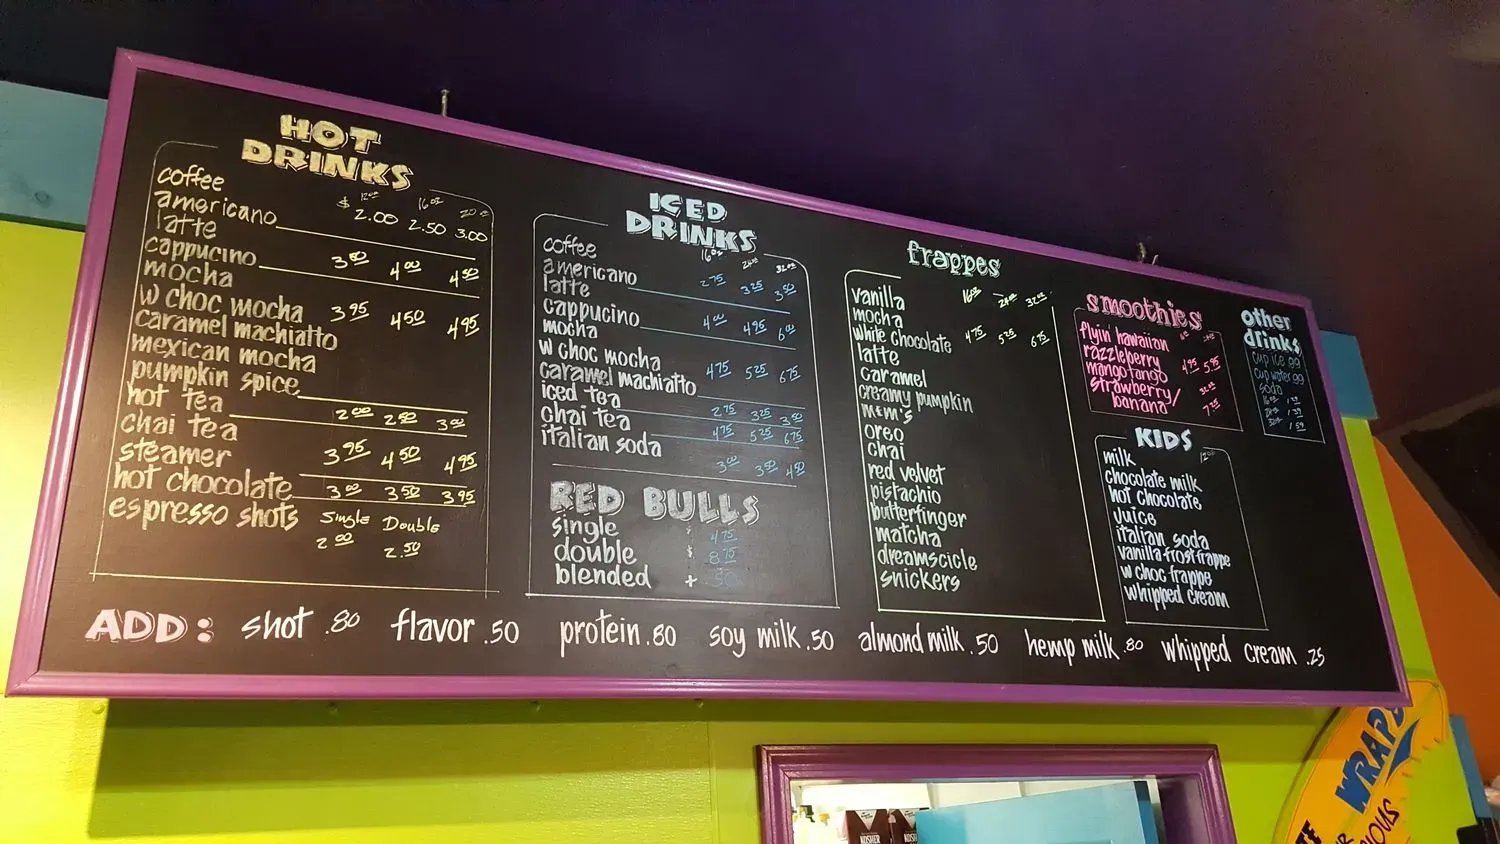 HOT
DRINKS
$ 12oz 16oz 20oz
coffee
americano 2.00 2.50 3.00
latte
cappucino 3.50 4.00 4.50
mocha
w choc mocha 3.95 4.50 4.95
caramel machiatto
mexican mocha
pumpkin spice
hot tea 2.00 2.50 3.00
chai tea
steamer 3.95 4.50 4.95
hot chocolate 3.00 3.50 3.95
espresso shots Single Double
2.00 2.50
ICED
DRINKS
16oz 24oz 32oz
coffee
americano 2.75 3.25 3.50
latte
cappucino 4.00 4.95 6.00
mocha
w choc mocha
caramel machiatto 4.75 5.25 6.75
iced tea 2.75 3.25 3.50
chai tea 4.75 5.25 6.75
italian soda 3.00 3.50 4.50
RED BULLS
single 4.75
double $ 8.75
blended + .50
frappes
16oz 24oz 32oz
vanilla
mocha
white chocolate 4.75 5.25 6.75
latte
caramel
creamy pumpkin
m&m's
oreo
chai
red velvet
pistachio
butterfinger
matcha
dreamscicle
snickers
smoothies
flyin' hawaiian
razzleberry
mangotango 4.95 5.95
strawberry/ 32oz
banana 7.25
other
drinks
cup ice .99
cup water .99
soda
16oz
24oz 1.39
32oz 1.59
KIDS
12oz
milk
chocolate milk
hot chocolate
juice
italian soda
vanilla frost frappe
w choc frappe
whipped cream
ADD: shot .80 flavor .50 protein .80 soy milk .50 almond milk .50 hemp milk .80 whipped cream .25
WRAPS
KOSHER